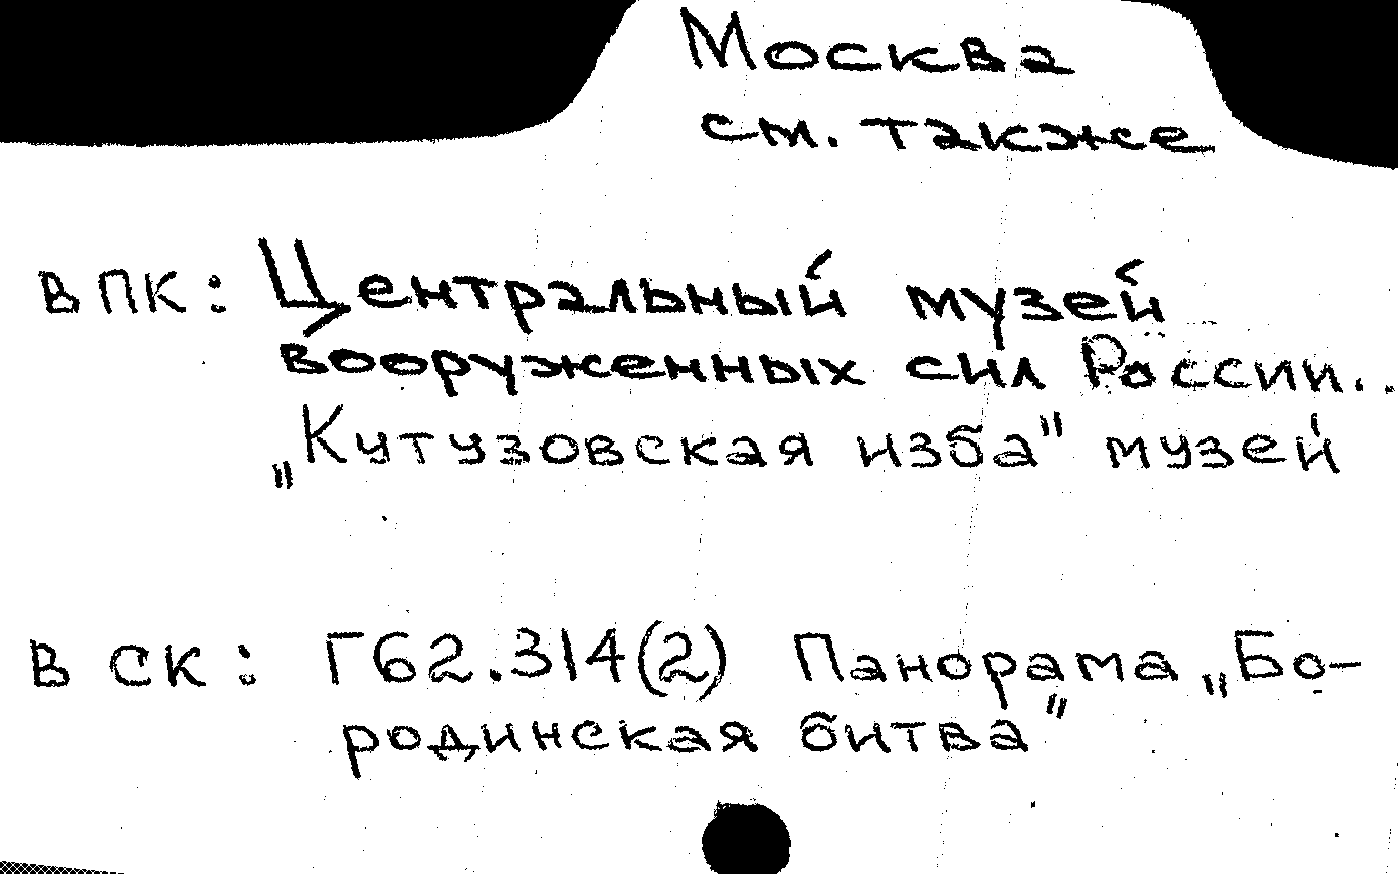 Москва
см. также
в ПК: Центральный музей
вооруженных сил России..
„Кутузовская изба" музей
в СК: Г62.314(2) Панорама „Бо-
родинская битва"